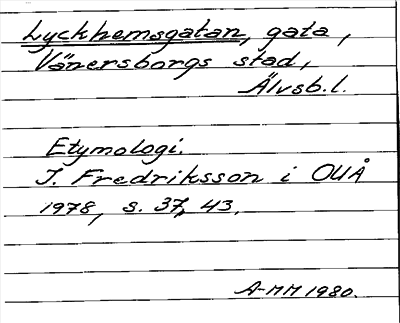 Lyckhemsgatan, gata,
Vänersborgs stad,
Älvsb.l.
Etymologi.
I. Fredriksson i OUÅ
1978, s. 37, 43.
A-MM 1980.